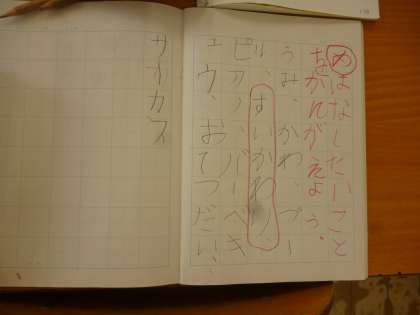 めはなしたいこと
をかんがえよう。
うみ、かわ、プー
ル、すいかわり、
ピアノ、バーベキ
ュウ、おてつだい、
サーカス